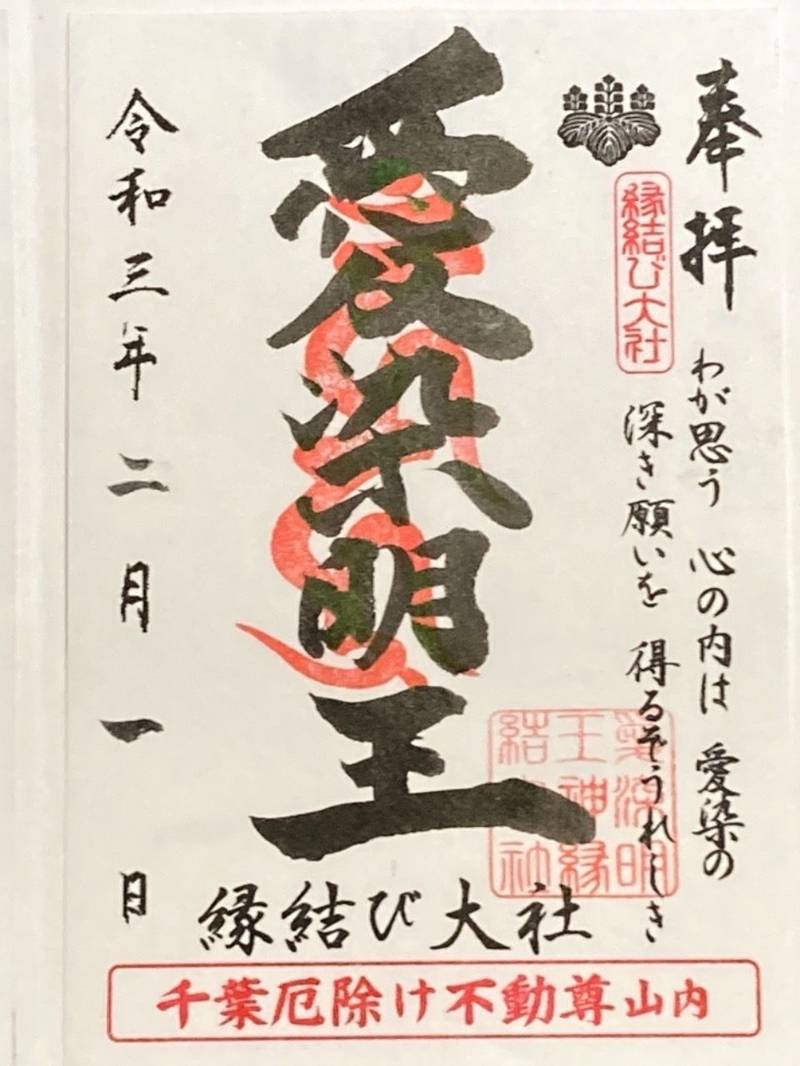 奉拝
縁結び大社
わが思う 心の内は 愛染の
深き願いを 得るぞうれしき
愛染明王
愛染明
王神縁
結大社
縁結び大社
令和三年二月一日
千葉厄除け不動尊山内